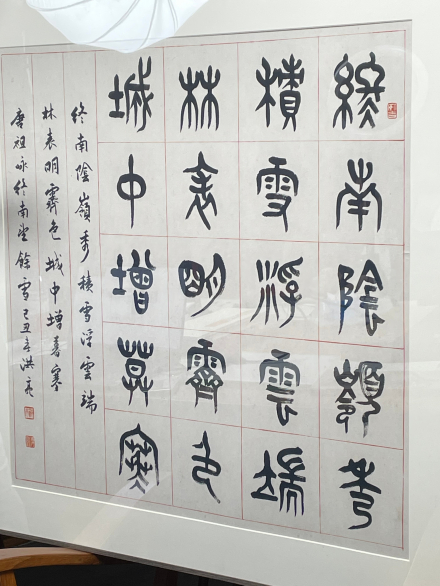 終南陰嶺秀
積雪浮雲端
林表明霽色
城中增暮寒
終南陰嶺秀積雪浮雲端
林表明霽色城中增暮寒
唐祖咏終南望餘雪己丑洪亮